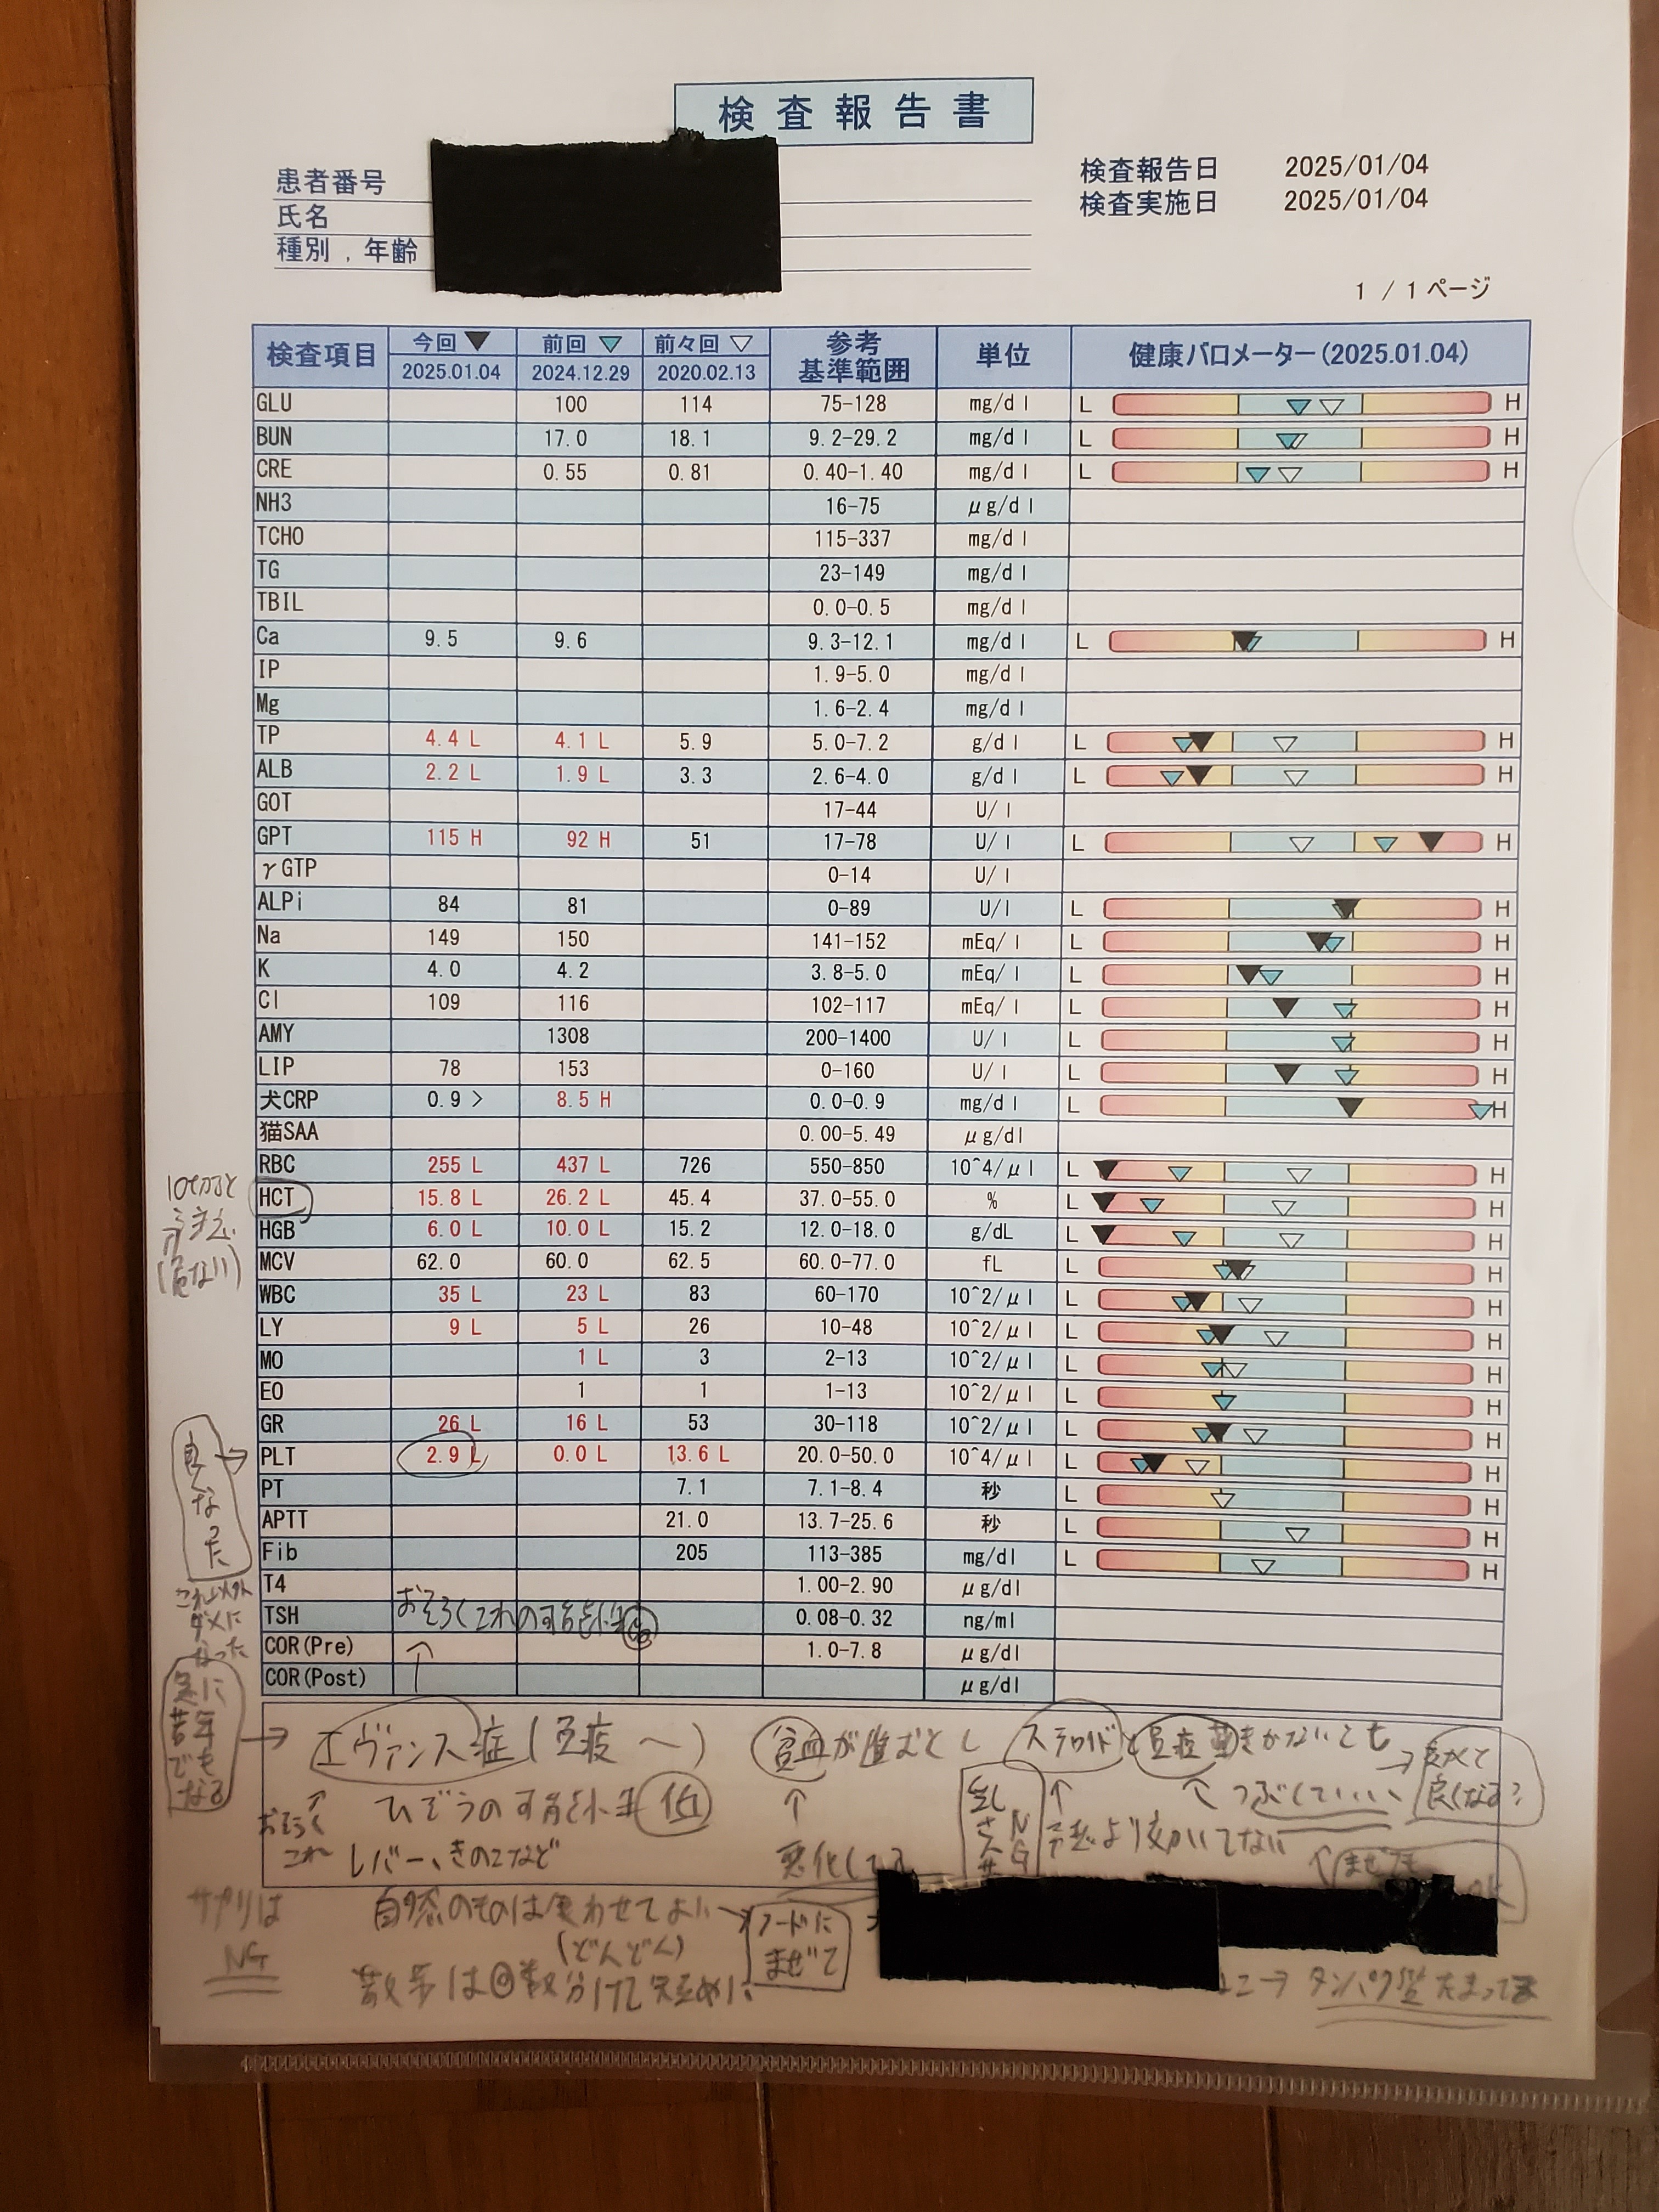 検査報告書
患者番号
氏名
種別 , 年齢
検査報告日 2025/01/04
検査実施日 2025/01/04
1 / 1 ページ
検査項目 今回▼ 2025.01.04 前回▽ 2024.12.29 前々回▽ 2020.02.13 参考基準範囲 単位 健康バロメーター(2025.01.04)
GLU 100 114 75-128 mg/dl L H
BUN 17.0 18.1 9.2-29.2 mg/dl L H
CRE 0.55 0.81 0.40-1.40 mg/dl L H
NH3 16-75 μg/dl
TCHO 115-337 mg/dl
TG 23-149 mg/dl
TBIL 0.0-0.5 mg/dl
Ca 9.5 9.6 9.3-12.1 mg/dl L H
IP 1.9-5.0 mg/dl
Mg 1.6-2.4 mg/dl
TP 4.4 L 4.1 L 5.9 5.0-7.2 g/dl L H
ALB 2.2 L 1.9 L 3.3 2.6-4.0 g/dl L H
GOT 17-44 U/l
GPT 115 H 92 H 51 17-78 U/l L H
γGTP 0-14 U/l
ALPi 84 81 0-89 U/l L H
Na 149 150 141-152 mEq/l L H
K 4.0 4.2 3.8-5.0 mEq/l L H
Cl 109 116 102-117 mEq/l L H
AMY 1308 200-1400 U/l L H
LIP 78 153 0-160 U/l L H
犬CRP 0.9 > 8.5 H 0.0-0.9 mg/dl L H
猫SAA 0.00-5.49 μg/dl
RBC 255 L 437 L 726 550-850 10^4/μl L H
HCT 15.8 L 26.2 L 45.4 37.0-55.0 % L H
HGB 6.0 L 10.0 L 15.2 12.0-18.0 g/dL L H
MCV 62.0 60.0 62.5 60.0-77.0 fL L H
WBC 35 L 23 L 83 60-170 10^2/μl L H
LY 9 L 5 L 26 10-48 10^2/μl L H
MO 1 L 3 2-13 10^2/μl L H
EO 1 1 1-13 10^2/μl L H
GR 26 L 16 L 53 30-118 10^2/μl L H
PLT 2.9 L 0.0 L 13.6 L 20.0-50.0 10^4/μl L H
PT 7.1 7.1-8.4 秒 L H
APTT 21.0 13.7-25.6 秒 L H
Fib 205 113-385 mg/dl L H
T4 1.00-2.90 μg/dl
TSH 0.08-0.32 ng/ml
COR(Pre) 1.0-7.8 μg/dl
COR(Post) μg/dl
10切ると
(危ない)
良くなった
これ以外
ダメに
なった
急に
若年
でも
なる
おそらくこれの可能性
エヴァンス症(免疫〜) 貧血が進むとし ステロイドと免疫 きかないても
ひぞうの可能性 低 つぶしていい
良くなる?
おそらく
これ レバー、きのこなど 悪化してる 予想より効いてない
サプリは
NG
自然のものは食わせてよい
(どんどん)
フードに
まぜて
散歩は 数分けて短めに
タンパク質